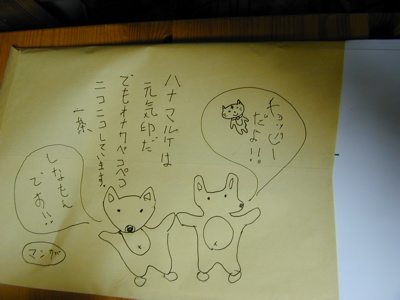 だよ!!
ハナマルケは
元気印だ
でもオナカペコペコ
ニコニコしています。
一茶
しなもん
でお!!
マンガ